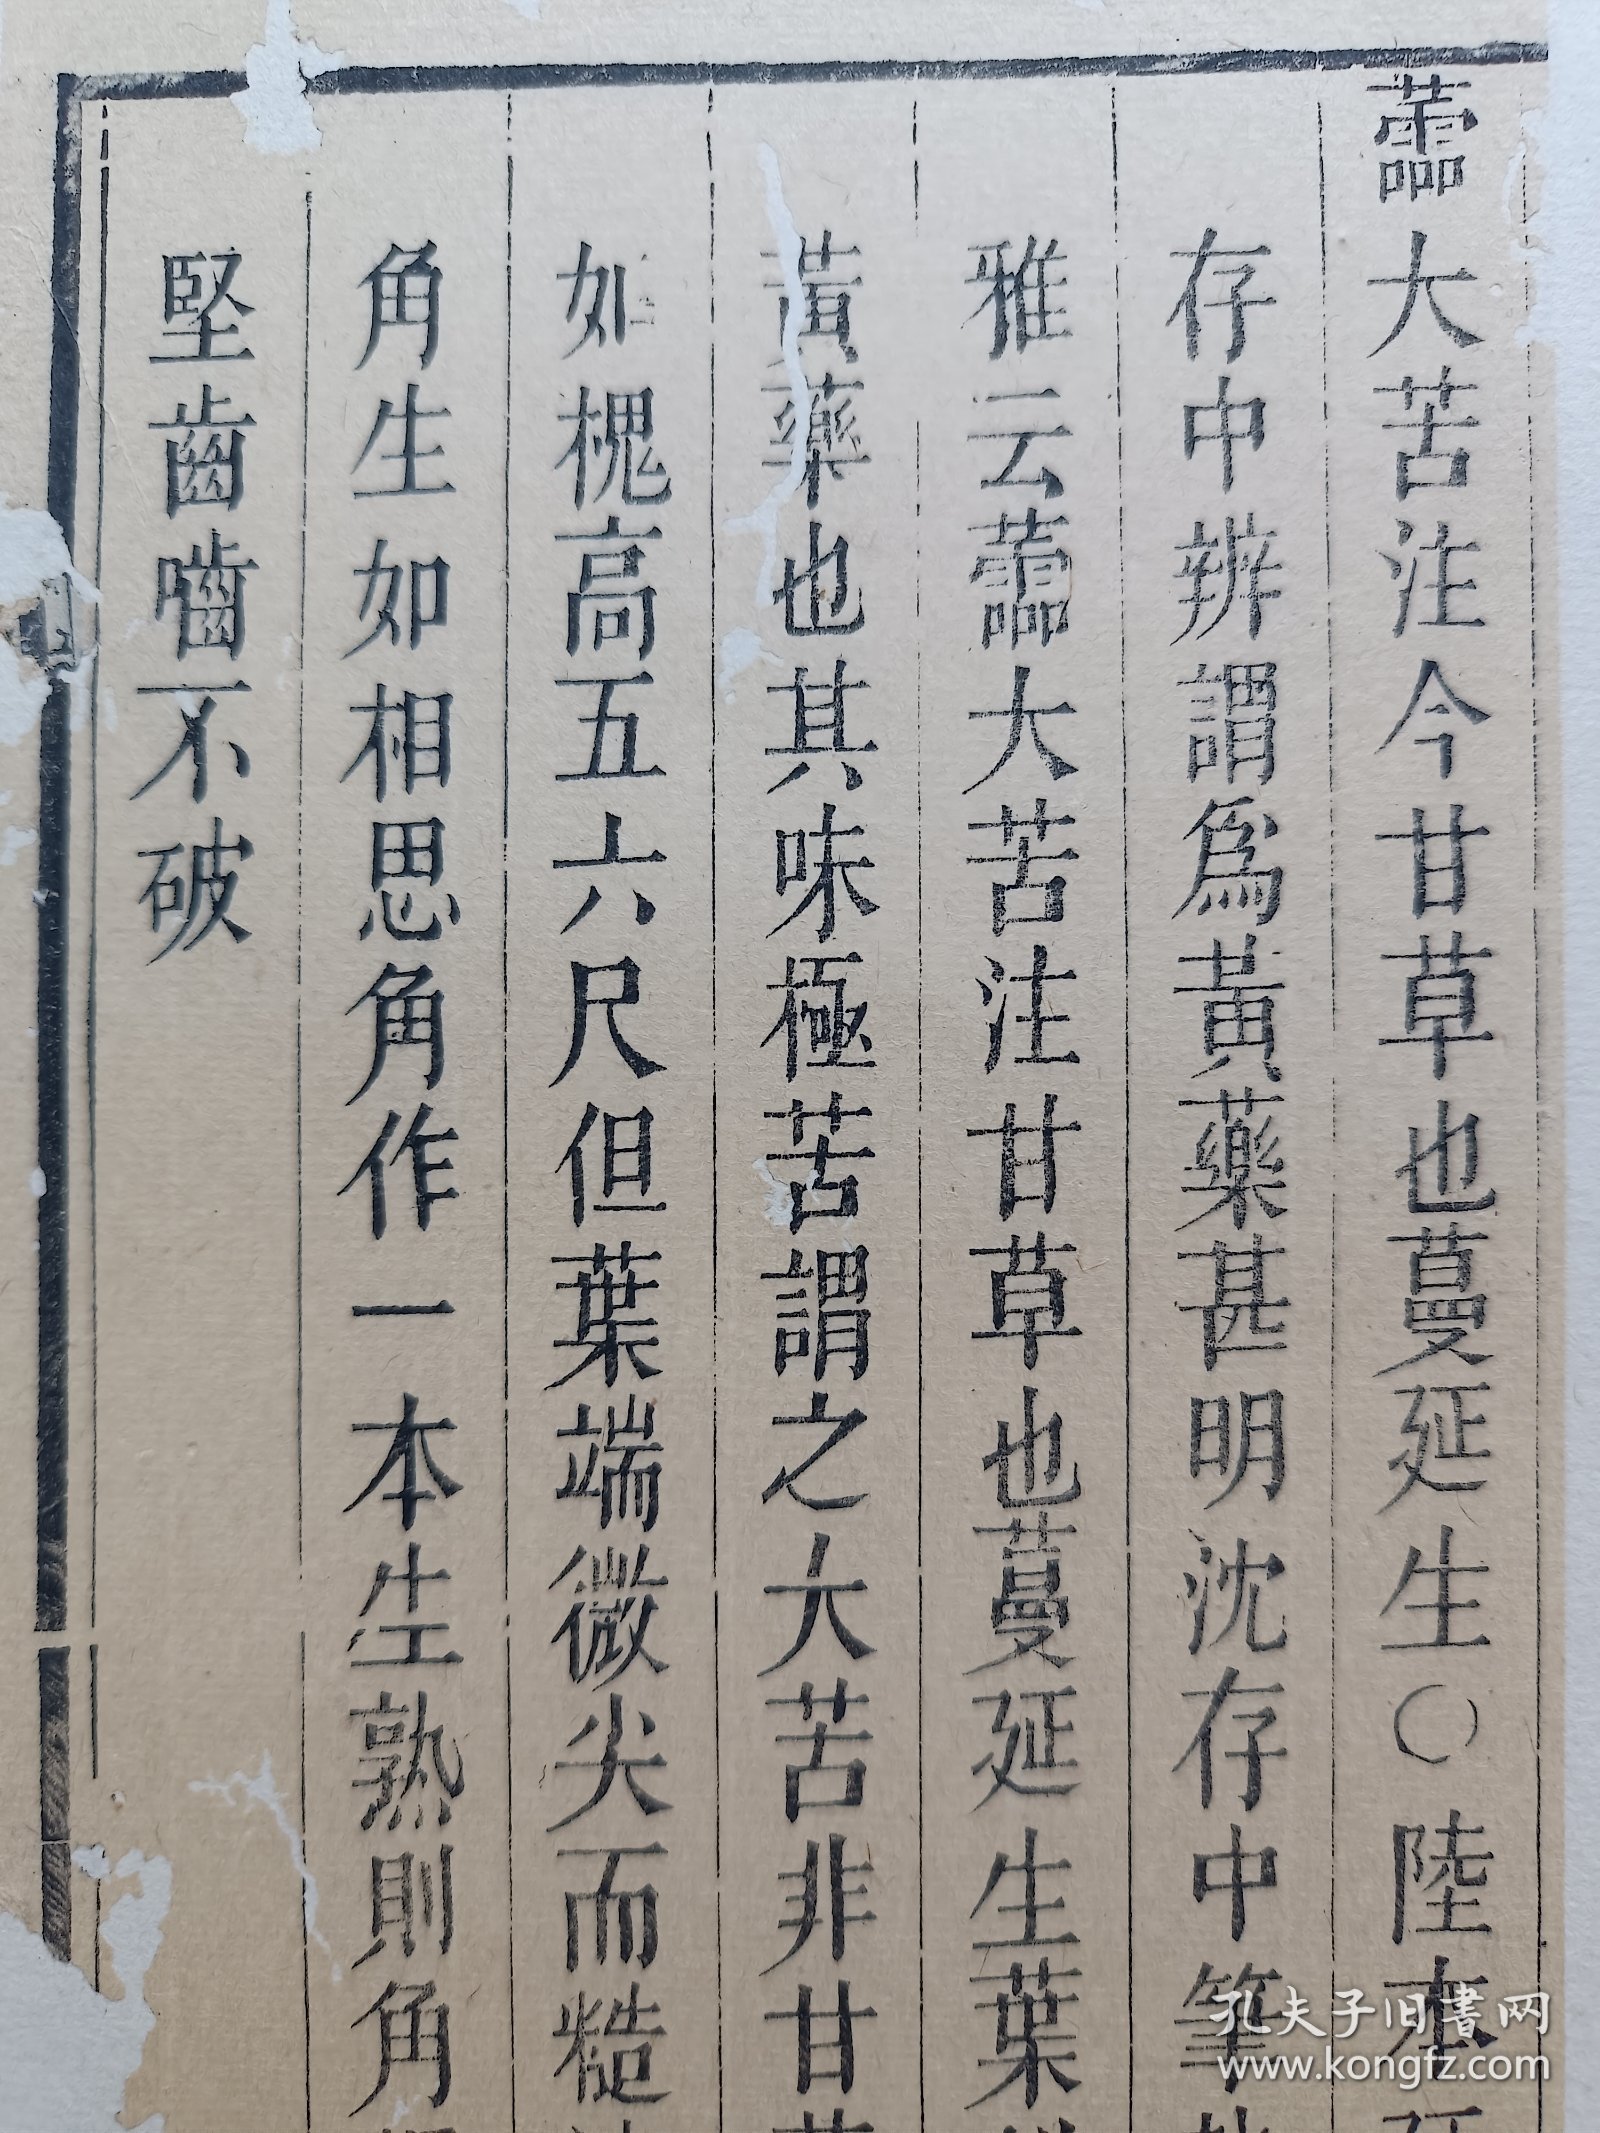 蘦大苦注今甘草也蔓延生○陸
存中辨謂爲黃藥甚明沈存中筆
雅云蘦大苦注甘草也蔓延生葉
黃藥也其味極苦謂之大苦非甘
如槐高五六尺但葉端微尖而糙
角生如相思角作一本生熟則角
堅齒嚙不破
孔夫子旧書网
www.kongfz.com